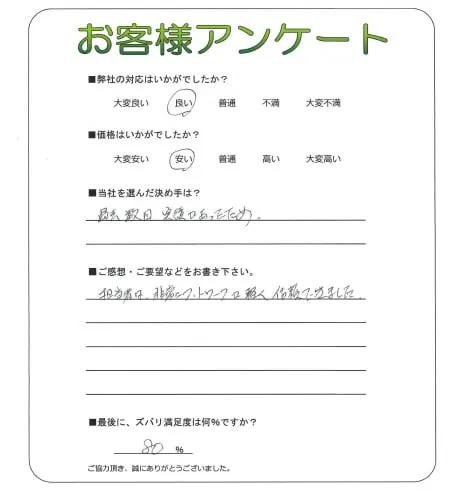 お客様アンケート
■弊社の対応はいかがでしたか？
大変良い 良い 普通 不満 大変不満
■価格はいかがでしたか？
大変安い 安い 普通 高い 大変高い
■当社を選んだ決め手は？
過去数回 実績があったため。
■ご感想・ご要望などをお書き下さい。
担当者は、非常にフットワークが軽く 信頼できました。
■最後に、ズバリ満足度は何%ですか？
80 %
ご協力頂き、誠にありがとうございました。